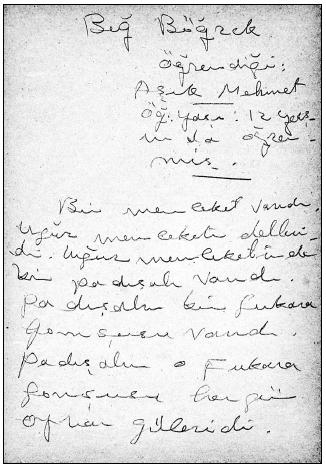 Beğ Böğrek
Öğrendiği:
Aşık Mehmet
Öğ. Yaşı: 12 yaşı-
n da öğren-
miş.
Bir memleket vandı.
Uğuz memleketi delleni-
di. Uğuz memleketinde
bir padişah vandı.
Padişahın bir fukara
gomşusu vandı.
Padişahın o fukara
gomşusu her gün
gülenidi.